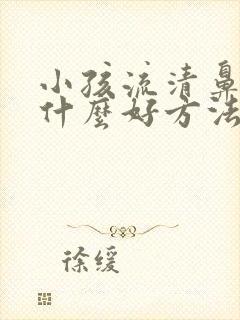 小孩流清鼻
什麼好方法
徐缓